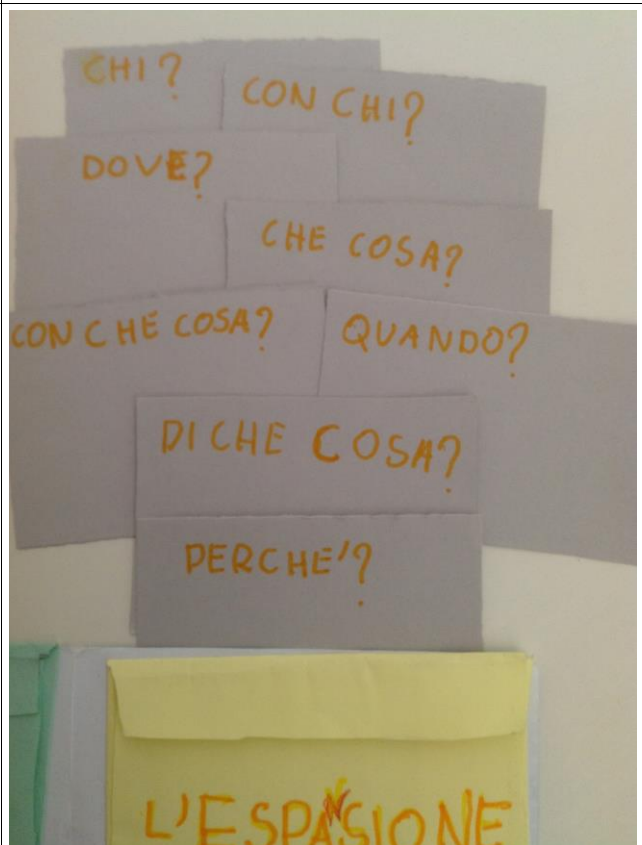 CHI?
CON CHI?
DOVE?
CHE COSA?
CON CHE COSA?
QUANDO?
DI CHE COSA?
PERCHE'?
L'ESPANSIONE